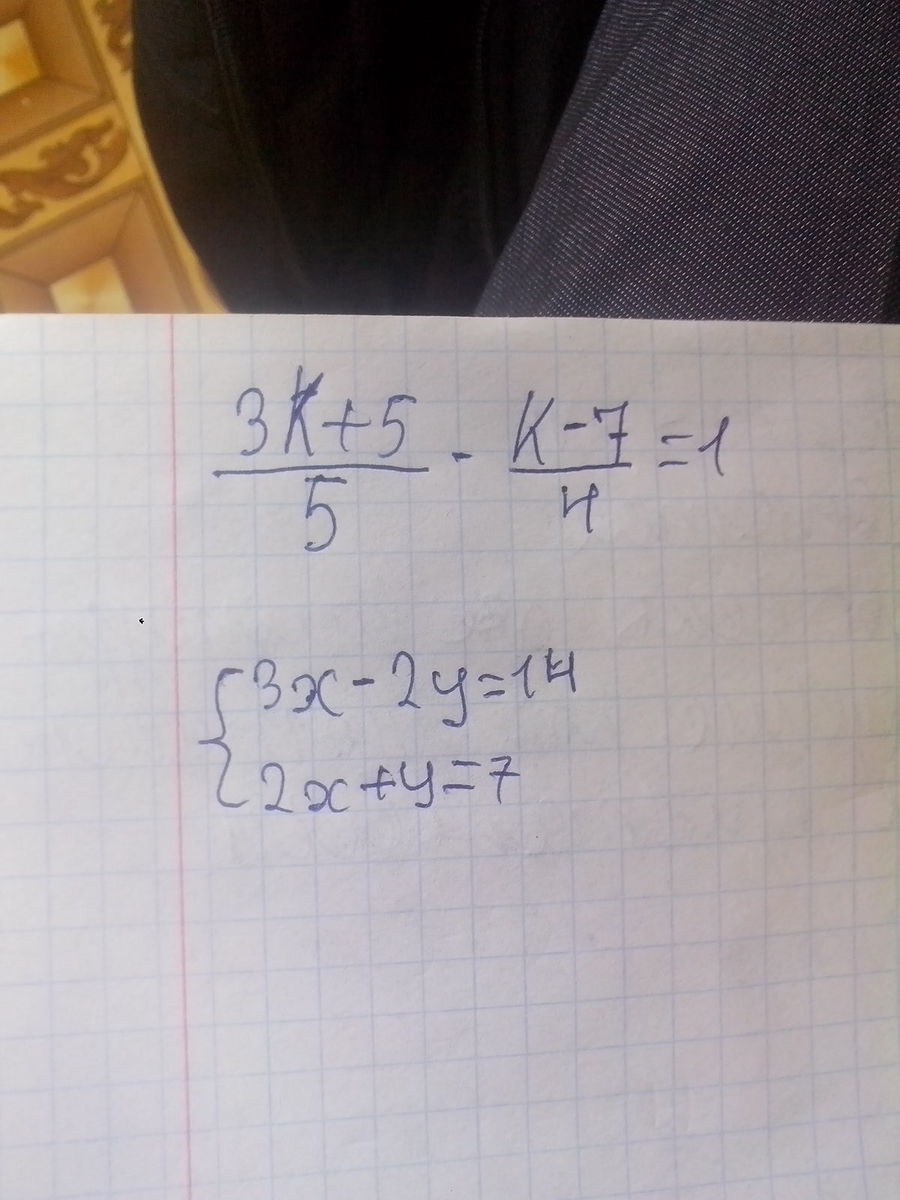 3K+5/5 - K-7/4 =1
{3x-2y=14
2x+y=7